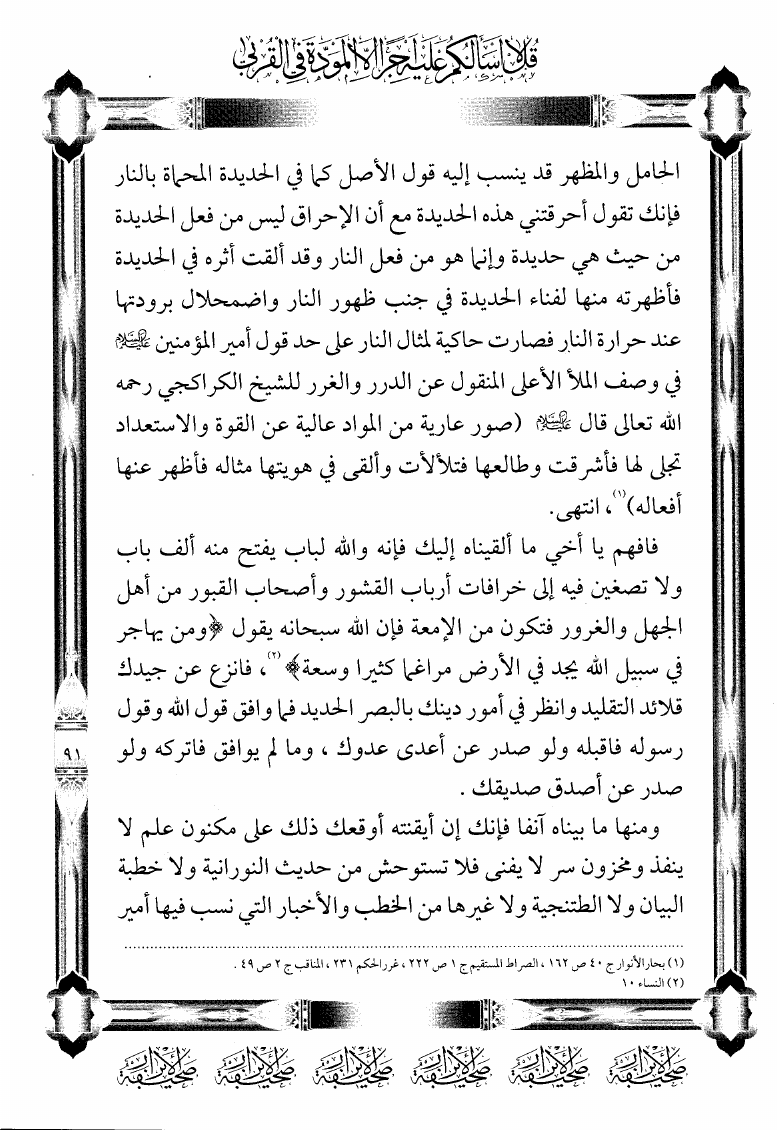 قل لا أسألكم عليه أجرا إلا المودة في القربى
الحامل والمظهر قد ينسب إليه قول الأصل كما في الحديدة المحماة بالنار
فإنك تقول أحرقتني هذه الحديدة مع أن الإحراق ليس من فعل الحديدة
من حيث هي حديدة وإنما هو من فعل النار وقد ألقت أثره في الحديدة
فأظهرته منها لفناء الحديدة في جنب ظهور النار واضمحلال برودتها
عند حرارة النار فصارت حاكية لمثال النار على حد قول أمير المؤمنين عليه السلام
في وصف الملأ الأعلى المنقول عن الدرر والغرر للشيخ الكراكجي رحمه
الله تعالى قال عليه السلام (صور عارية من المواد عالية عن القوة والاستعداد
تجلى لها فأشرقت وطالعها فتلألأت وألقى في هويتها مثاله فأظهر عنها
أفعاله)(١)، انتهى.
فافهم يا أخي ما ألقيناه إليك فإنه والله لباب يفتح منه ألف باب
ولا تصغين فيه إلى خرافات أرباب القشور وأصحاب القبور من أهل
الجهل والغرور فتكون من الإمعة فإن الله سبحانه يقول ﴿ومن يهاجر
في سبيل الله يجد في الأرض مراغما كثيرا وسعة﴾(٢)، فانزع عن جيدك
قلائد التقليد وانظر في أمور دينك بالبصر الحديد فما وافق قول الله وقول
رسوله فاقبله ولو صدر عن أعدى عدوك ، وما لم يوافق فاتركه ولو
صدر عن أصدق صديقك .
ومنها ما بيناه آنفا فإنك إن أيقنته أوقعك ذلك على مكنون علم لا
ينفذ ومخزون سر لا يفنى فلا تستوحش من حديث النورانية ولا خطبة
البيان ولا الطتنجية ولا غيرها من الخطب والأخبار التي نسب فيها أمير
(١) بحار الأنوار ج ٤٠ ص ١٦٢ ، الصراط المستقيم ج ١ ص ٢٢٢ ، غرر الحكم ٢٣١ ، المناقب ج ٢ ص ٤٩ .
(٢) النساء ١٠
٩١
صحيفة الأبرار صحيفة الأبرار صحيفة الأبرار صحيفة الأبرار صحيفة الأبرار صحيفة الأبرار